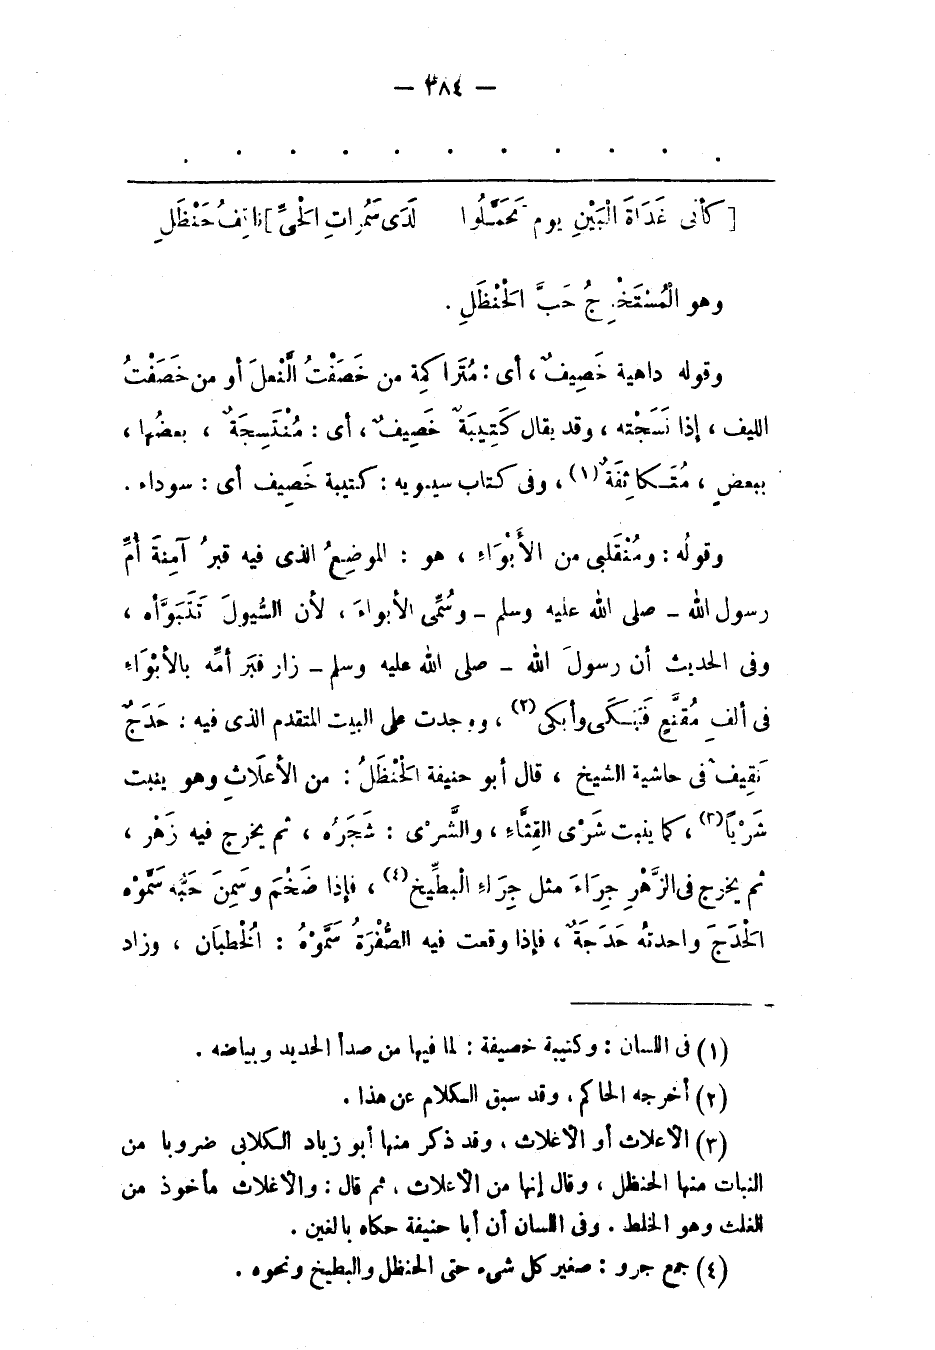 — ٣٨٤ —
. . . . . . . . . . .
[ كأنى غَدَاةَ الْبَيْنِ يوم تَحَمَّلُوا لَدَى سَمُرَاتِ الْحَىِّ ] نَاقِفُ حَنْظَلِ
وهو الْمُسْتَخْرِجُ حَبَّ الْحَنْظَلِ .
وقوله داهية خَصِيفٌ ، أى : مُتَرَاكِمَة من خَصَفْتُ النَّعلَ أو من خَصَفْتُ
الليف ، إذا نَسَجْته ، وقد يقال كَتِيبَةٌ خَصِيفٌ ، أى : مُنْتَسِجَةٌ ، بعضُها ،
ببعضٍ ، مُتَكاثِفَةٌ (١) ، وفى كتاب سيبويه : كتيبة خَصِيف أى : سوداء .
وقولُه : ومُنْقَلَبى من الأَبْوَاءِ ، هو : الموضِعُ الذى فيه قبرُ آمِنةَ أمِّ
رسول الله ــ صلى الله عليه وسلم ــ وسُمِّى الأبواءَ ، لأن السُّيولَ تَتَبَوَّأه ،
وفى الحديث أن رسولَ الله ــ صلى الله عليه وسلم ــ زار قبَر أمِّه بالأبْوَاءِ
فى ألفِ مُقنَّعٍ فَبَكَى وأبكى (٢) ، ووجدت على البيت المتقدم الذى فيه : حَدَجٌ
نَقِيفٌ فى حاشية الشيخ ، قال أبو حنيفة الْحَنْظَلُ : من الأعلَاثِ وهو ينبت
شَرْيًا (٣) ، كما ينبت شَرْى القِثَّاءِ ، والشَّرْى : شَجَرُه ، ثم يخرج فيه زَهْر ،
ثم يخرج فى الزَّهْرِ جِرَاءَ مثل جِرَاءِ الْبطِّيخ (٤) ، فإذا ضَخُمَ وسَمِنَ حَبُّه سَمَّوْه
الْحَدَجَ واحدتُه حَدَجَةٌ ، فإذا وقعت فيه الصُّفْرَةُ سَمَّوْهُ : الْخُطبَان ، وزاد
(١) فى اللسان : وكتيبة خصيفة : لما فيها من صدأ الحديد وبياضه .
(٢) أخرجه الحاكم ، وقد سبق الكلام عن هذا .
(٣) الأعلاث أو الأغلاث ، وقد ذكر منها أبو زياد الكلابى ضروبا من
النبات منها الحنظل ، وقال إنها من الأعلاث ، ثم قال : والأغلاث مأخوذ من
الغلث وهو الخلط . وفى اللسان أن أبا حنيفة حكاه بالغين .
(٤) جمع جرو : صغير كل شىء حتى الحنظل والبطيخ ونحوه .